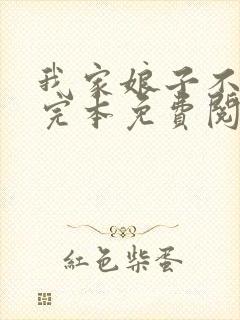 我家娘子不
完本免費閱
紅色柴蛋